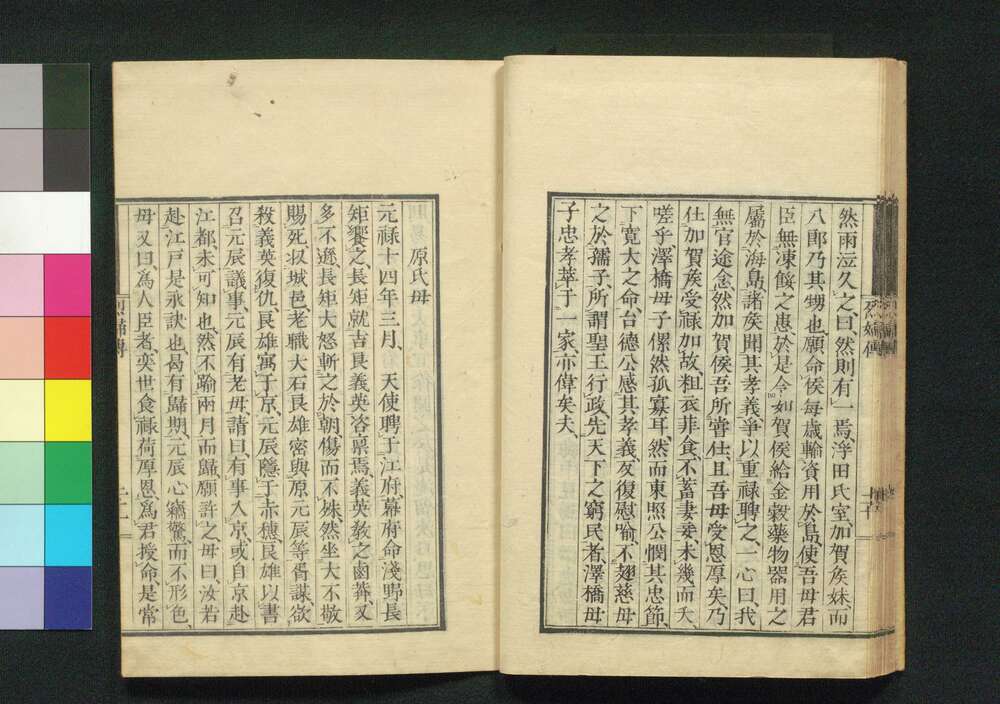 然雨泣久之曰然則有一焉浮田氏室加賀矦妹而
八郎乃其甥也願命候每歲輸資用於島使吾母君
臣無凍餒之患於是令加賀侯給金穀藥物器用之
屬於海島諸矦聞其孝義爭以重祿聘之一心曰我
無官途念然加賀侯吾所嘗仕且吾母受恩厚矣乃
仕加賀矦受祿加故粗衣菲食不蓄妻妾未幾而夭
嗟乎澤橋母子傫然孤寡耳然而東照公憫其忠節
下寬大之命台德公感其孝義反復慰喻不翅慈母
之於孺子所謂聖王行政先天下之窮民者澤橋母
子忠孝萃于一家亦偉矣夫
烈婦傳
原氏母
元祿十四年三月 天使聘于江府幕府命淺野長
矩饗之長矩就吉良義英咨稟焉義英敎之鹵莽又
多不遜長矩大怒斬之於朝傷而不殊然坐大不敬
賜死收城邑老職大石良雄密與原元辰等胥謀欲
殺義英復仇良雄寓于京元辰隱于赤穗良雄以書
召元辰議事元辰有老母請曰有事入京或自京赴
江都未可知也然不踰兩月而歸願許之母曰汝若
赴江戸是永訣也曷有歸期元辰心竊驚而不形色
母又曰爲人臣者奕世食祿荷厚恩爲君授命是常